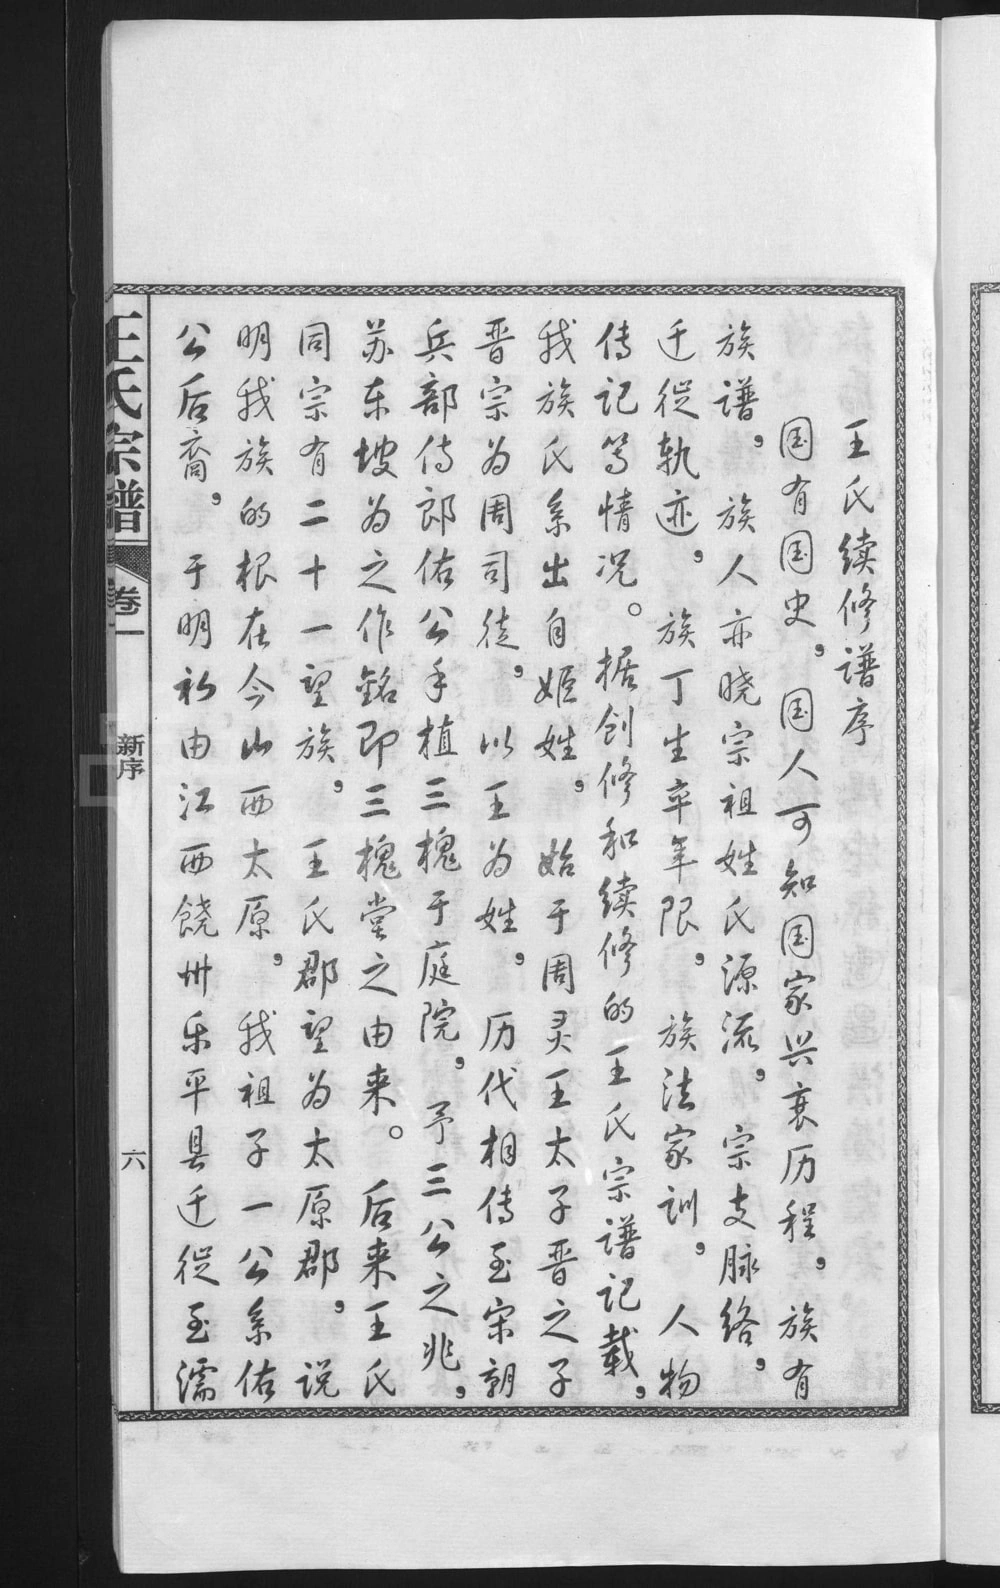 王氏续修谱序
国有国史，国人可知国家兴衰历程，族有
族谱，族人亦晓宗祖姓氏源流，宗支脉络，
迁徙轨迹，族丁生卒年限，族法家训，人物
传记等情况。据创修和续修的王氏宗谱记载，
我族氏系出自姬姓，始于周灵王太子晋之子
晋宗为周司徒，以王为姓，历代相传至宋朝
兵部侍郎佑公手植三槐于庭院，予三公之兆，
苏东坡为之作銘即三槐堂之由来。后来王氏
同宗有二十一望族，王氏郡望为太原郡，说
明我族的根在今山西太原，我祖子一公系佑
公后裔，于明初由江西饶州乐平县迁徙至濡
王氏宗谱
卷一
新序
六